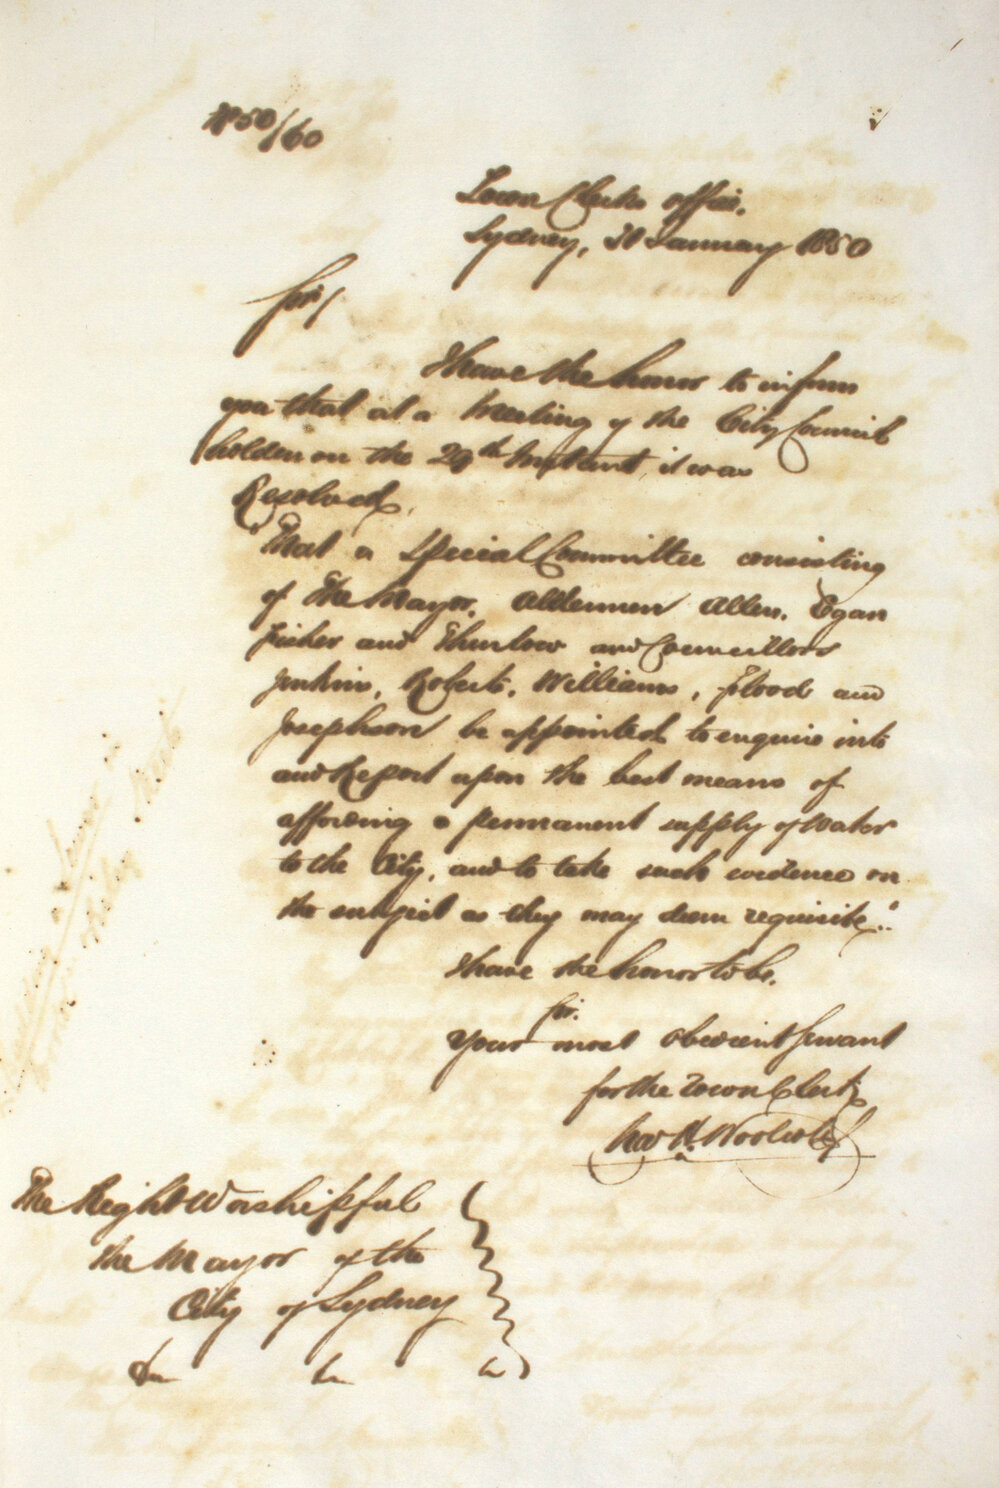 No 50/60
Town Clerks office.
Sydney, 31 January 1850
Sir,
I have the honor to inform
you that at a Meeting of the City Council
holden on the 29th Instant, it was
Resolved,
"That a Special Committee consisting
of The Mayor, Aldermen Allen, Egan
Fisher and Thurlow and Councillors
Jenkins, Roberts, Williams, Flood and
Josephson be appointed to enquire into
and Report upon the best means of
affording a permanent supply of Water
to the City, and to take such evidence on
the subject as they may deem requisite."
I have the honor to be,
Sir.
Your most obedient Servant
for the Town Clerk
Chas H. Woolcott
The Right Worshipful
the Mayor of the
City of Sydney